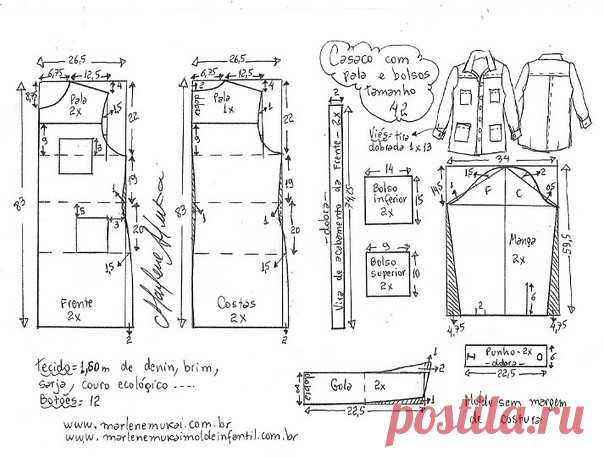 26,5
6,75 12,5
4
8,75
Pala
2x
1,5
22
9
3
19
83
3
20
1,5
Frente
2x
2
Marlene Mukai
26,5
6,75 12,5
4
dobra
Pala
1x
1
22
9
19
83
1
1
20
1,5
Costas
2x
2
Casaco com
pala e bolsos
tamanho
42
Viés= tira
dobrada 1x13
2
Vira de acabamento da frente - 2x
-dobra-
74,25
14
Bolso
inferior
2x
15
9
Bolso
superior
2x
10
34
14,5
1,5
2
1
0,5
F
C
Manga
2x
56,5
6
2
4,75
4,75
Punho - 2x
-dobra-
6
22,5
dobra
Gola 2x
8
1
2
1
22,5
Tecido= 1,60 m de denin, brim,
sarja, couro ecológico ....
Botões= 12
www.marlenemukai.com.br
www.marlenemukaimoldeinfantil.com.br
Molde sem margem
de costura
postila.ru